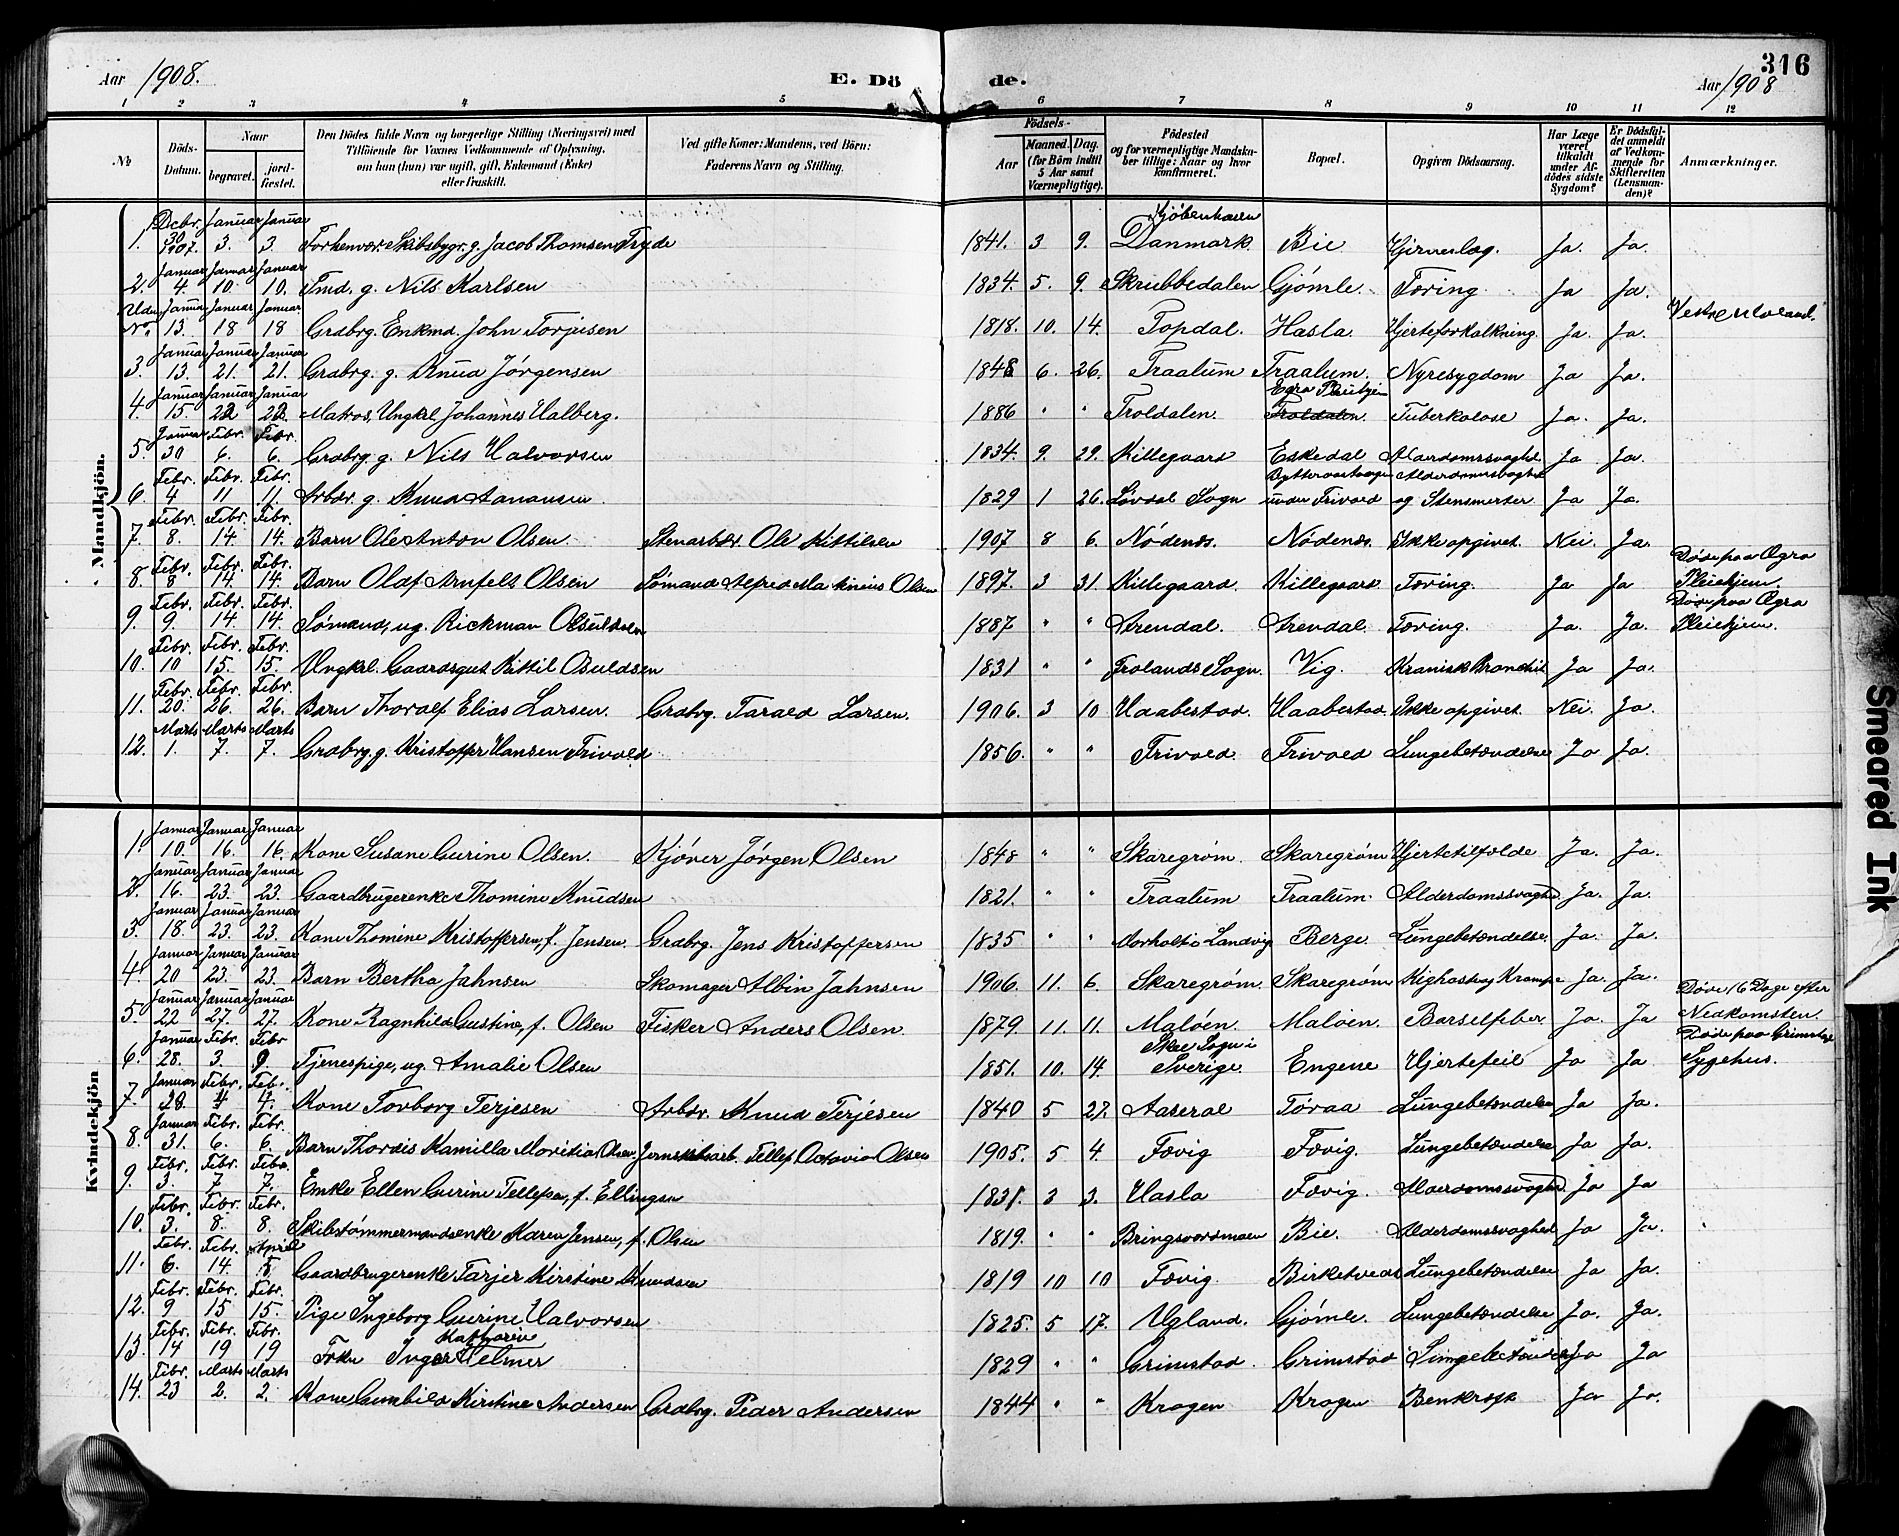 316
Aar 1908. E. Dö de. Aar 1908
1 2 3 4 5 6 7 8 9 10 11 12
№ Döds-Datum. Naar begravet. jord-fæstet. Den Dödes fulde Navn og borgerlige Stilling (Næringsvei) med Tilföiende for Voxnes Vedkommende af Oplysning, om han (hun) var ugift, gift, Enkemand (Enke) eller fraskilt. Ved gifte Koner: Mandens, ved Börn: Faderens Navn og Stilling. Födsels- Aar Maaned. Dag. (for Börn indtil 5 Aar samt Værnepligtige). Födested og for værnepligtige Mandskaber tillige: Naar og hvor konfirmeret. Bopæl. Opgiven Dödsaarsag. Har Læge været tilkaldt under Afdödes sidste Sygdom? Er Dödsfaldet anmeldt af Vedkommende for Skifteretten (Lensmanden)? Anmærkninger.
Mandkjön.
1. Decbr. 30 1907. Januar 3. Januar 3. Forhenvær. Skibsbygr. g. Jacob Thomsen Fryde 1841. 3 9. Kjøbenhavn Danmark. Bie Hjerneslag. Ja. Ja.
2. Januar 4. Januar 10. Januar 10. Fmd. g. Nils Karlsen 1834. 5. 9. Skrubbedalen Gjömle. Tæring. Ja Ja.
Uden No. Januar 13. Januar 18 Januar 18 Grdbrg. Enkmd. John Torjusen 1818. 10. 14. Topdal. Hasla. Hjerteforkalkning. Ja. Ja.
3. Januar 13. Januar 21. Januar 21. Grdbrg. g. Knud Jørgensen 1848 6. 26. Traalum Traalum. Nyresygdom Ja Ja.
4. Januar 15. Januar 22 Januar 22. Matros, Ungkrl. Johannes Halberg. 1886 " " Troldalen. Troldalen. Tuberkolose Ja. Ja.
5. Januar 30 Febr. 6. Febr. 6. Grdbrg. g. Nils Halvorsen 1834. 9. 29. Killegaard Eskedal Alderdomssvaghd. Ja Ja.
6. Febr. 4 Febr. 11 Febr. 11. Arbdr. g. Knud Aanonsen. 1829 1 26. Løvdal Sogn under Frivold Alderdomssvaghed og Stensmerter Ja Ja.
7. Febr. 8. Febr. 14. Febr. 14. Barn Ole Anton Olsen. Stenarbdr. Ole Kittilsen 1907 8 6. Nødenes. Nødenes. Ikke opgivet. Nei. Ja.
8. Febr. 8 Febr. 14. Febr. 14. Barn Olaf Arnfelt Olsen Sømand Alfred Mathinius Olsen 1897. 3 31. Killegaard. Killegaard Tæring. Ja Ja Døde paa Ogra Pleiehjem.
9. Febr. 9. Febr. 14. Febr. 14. Sømand, ug. Rickman Osuldsen 1887 " " Arendal. Arendal. Tæring. Ja. Ja. Døde paa Ogra Pleiehjem.
10. Febr. 10 Febr. 15. Febr. 15. Ungkrl. Gaardsgut Kittil Osuldsen 1831 " " Frolands Sogn. Vig. Kronisk Bronchit Ja Ja.
11. Febr. 20. Febr. 26. Febr. 26. Barn Thoralf Elias Larsen. Grdbrg. Tarald Larsen. 1906. 3 10 Haabestad. Haabestad. Ikke opgivet. Nei. Ja.
12. Marts 1. Marts 7. Marts 7. Grdbrg g. Kristoffer Hansen Frivold 1856. " " Frivold. Frivold Lungebetændelse Ja Ja.
Kvindekjön
1. Januar 10. Januar 16. Januar 16. Kone Susane Gurine Olsen. Kjøver Jørgen Olsen 1848 " " Skaregrøm. Skaregrøm Hjertetilfælde Ja. Ja.
2. Januar 16. Januar 23. Januar 23. Gaardbrugerenke Thomine Knudsen 1821. " " Traalum Traalum. Alderdomssvaghd. Ja. Ja.
3. Januar 18. Januar 23. Januar 23. Kone Thomine Kristoffersen, f. Jensen. Grdbrg. Jens Kristoffersen 1835 " " Morholt i Landvig Berge. Lungebetændelse. Ja. Ja.
4. Januar 20 Januar 23. Januar 23. Barn Bertha Jahnsen Skomager Albin Jahnsen 1906. 11. 6. Skaregrøm. Skaregrøm Kighoste og Krampe Ja. Ja.
5. Januar 22 Januar 27. Januar 27. Kone Ragnhild Gustine, f. Olsen Fisker Anders Olsen. 1879. 11. 11. Maløen. Maløen. Barselfeber. Ja. Ja Døde 16 Dage efter Nedkomsten.
6. Januar 28. Febr. 3. Febr 9 Tjenespige, ug. Amalie Olsen 1851. 10. 14. Skee Sogn i Sverige. Engene Hjertefeil Ja Ja Døde paa Grimstad Sygehus.
7. Januar 28. Febr. 4 Febr. 4. Kone Torborg Terjesen Arbdr. Knud Terjesen 1840 5 27. Aaseral Töraa Lungebetændelse Ja Ja.
8. Januar 31. Febr. 6. Febr. 6 Barn Thordis Kamilla Moritia Olsen, Tellef Octavius Olsen 1905. 5 4. Fævig Fævig. Lungebetændelse Ja Ja.
9. Febr. 3. Febr. 7 Febr. 7. Enke Ellen Gurine Tellefsen, f. Ellingsen 1831. 3 3. Hasla Fævig. Alderdomssvaghed. Ja Ja
10. Febr. 3. Febr. 8. Febr. 8. Skibstømmermandsenke Karen Jensen, f. Olsen 1819. " " Bringsværdmoen Bie. Alderdomssvaghed Ja Ja.
11. Febr. 6. Febr. 14. April 5 Gaardbrugerenke Tarjer Kirstine Knudsen 1819 10 10 Fævig. Birketveds Lungebetændelse Ja Ja.
12. Febr. 9 Febr. 15 Febr. 15. Pige Ingeborg Gurine Halvorsen 1825. 5 17. Ugland. Gjømle. Lungebetændelse Ja. Ja.
13. Febr. 14 Febr. 19 Febr. 19 Frkn Inger Kathrine Helmer 1829 " " Grimstad. Grimstad Lungebetændelse Ja Ja
14. Febr. 23 Marts 2. Marts 2. Kone Gunhild Kirstine Andersen Grdbrg. Peder Andersen 1844 " " Krogen Krogen Benkræft Ja Ja.
Smeared Ink